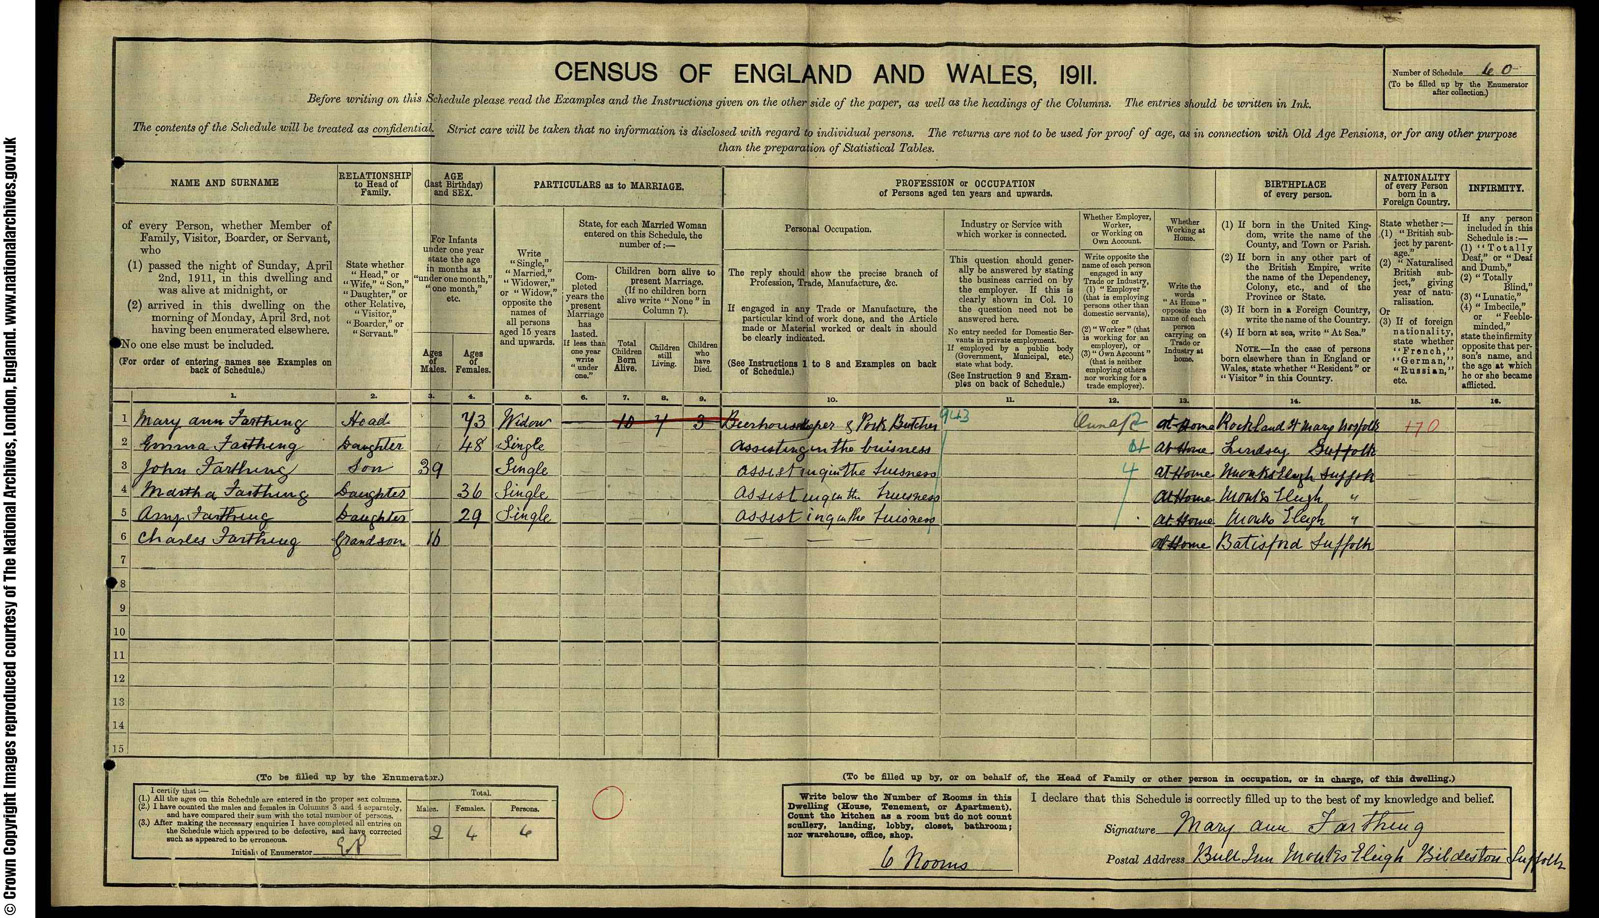 CENSUS OF ENGLAND AND WALES, 1911.
Number of Schedule 60
(To be filled up by the Enumerator
after collection.)
Before writing on this Schedule please read the Examples and the Instructions given on the other side of the paper, as well as the headings of the Columns. The entries should be written in Ink.
The contents of the Schedule will be treated as confidential. Strict care will be taken that no information is disclosed with regard to individual persons. The returns are not to be used for proof of age, as in connection with Old Age Pensions, or for any other purpose
than the preparation of Statistical Tables.
NAME AND SURNAME
of every Person, whether Member of
Family, Visitor, Boarder, or Servant,
who
(1) passed the night of Sunday, April
2nd, 1911, in this dwelling and
was alive at midnight, or
(2) arrived in this dwelling on the
morning of Monday, April 3rd, not
having been enumerated elsewhere.
No one else must be included.
(For order of entering names see Examples on
back of Schedule.)
RELATIONSHIP
to Head of
Family.
State whether
"Head," or
"Wife," "Son,"
"Daughter," or
other Relative,
"Visitor,"
"Boarder," or
"Servant."
AGE
(last Birthday)
and SEX.
For Infants
under one year
state the age
in months as
"under one month,"
"one month,"
etc.
Ages
of
Males.
Ages
of
Females.
PARTICULARS as to MARRIAGE.
Write
"Single,"
"Married,"
"Widower,"
or "Widow,"
opposite the
names of
all persons
aged 15 years
and upwards.
State, for each Married Woman
entered on this Schedule, the
number of:—
Com-
pleted
years the
present
Marriage
has
lasted.
If less than
one year
write
"under
one."
Children born alive to
present Marriage.
(If no children born
alive write "None" in
Column 7).
Total
Children
Born
Alive.
Children
still
Living.
Children
who
have
Died.
PROFESSION or OCCUPATION
of Persons aged ten years and upwards.
Personal Occupation.
The reply should show the precise branch of
Profession, Trade, Manufacture, &c.
If engaged in any Trade or Manufacture, the
particular kind of work done, and the Article
made or Material worked or dealt in should
be clearly indicated.
(See Instructions 1 to 8 and Examples on back
of Schedule.)
Industry or Service with
which worker is connected.
This question should gener-
ally be answered by stating
the business carried on by
the employer. If this is
clearly shown in Col. 10
the question need not be
answered here.
No entry needed for Domestic Ser-
vants in private employment.
If employed by a public body
(Government, Municipal, etc.)
state what body.
(See Instruction 9 and Exam-
ples on back of Schedule.)
Whether Employer,
Worker,
or Working on
Own Account.
Write opposite the
name of each person
engaged in any
Trade or Industry,
(1) "Employer"
(that is employing
persons other than
domestic servants),
or
(2) "Worker" (that
is working for an
employer), or
(3) "Own Account"
(that is neither
employing others
nor working for a
trade employer).
Whether
Working at
Home.
Write the
words
"At Home"
opposite the
name of each
person
carrying on
Trade or
Industry at
home.
BIRTHPLACE
of every person.
(1) If born in the United King-
dom, write the name of the
County, and Town or Parish.
(2) If born in any other part of
the British Empire, write
the name of the Dependency,
Colony, etc., and of the
Province or State.
(3) If born in a Foreign Country,
write the name of the Country.
(4) If born at sea, write "At Sea."
NOTE.—In the case of persons
born elsewhere than in England or
Wales, state whether "Resident" or
"Visitor" in this Country.
NATIONALITY
of every Person
born in a
Foreign Country.
State whether:—
(1) "British sub-
ject by parent-
age."
(2) "Naturalised
British sub-
ject," giving
year of natu-
ralisation.
Or
(3) If of foreign
nationality,
state whether
"French,"
"German,"
"Russian,"
etc.
INFIRMITY.
If any person
included in this
Schedule is:—
(1) "Totally
Deaf," or "Deaf
and Dumb,"
(2) "Totally
Blind,"
(3) "Lunatic,"
(4) "Imbecile,"
or "Feeble-
minded,"
state the infirmity
opposite that per-
son's name, and
the age at which
he or she became
afflicted.
1. 2. 3. 4. 5. 6. 7. 8. 9. 10. 11. 12. 13. 14. 15. 16.
1 Mary ann Farthing Head 73 Widow — 10 7 3 Beerhousekeeper & Pork Butcher 943 at Home Rockland St Mary Norfolk 170
2 Emma Farthing Daughter 48 Single Assisting in the buisness at Home Lindsey Suffolk
3 John Farthing Son 39 Single assisting in the buisness 4 at Home Monks Eleigh Suffolk
4 Martha Farthing Daughter 36 Single assisting in the buisness at Home Monks Eleigh "
5 Amy Farthing Daughter 29 Single assisting in the buisness at Home Monks Eleigh "
6 Charles Farthing Grandson 16 — — — at Home Batisford Suffolk
7
8
9
10
11
12
13
14
15
(To be filled up by the Enumerator.)
I certify that:—
(1.) All the ages on this Schedule are entered in the proper sex columns.
(2.) I have counted the males and females in Columns 3 and 4 separately,
and have compared their sum with the total number of persons.
(3.) After making the necessary enquiries I have completed all entries on
the Schedule which appeared to be defective, and have corrected
such as appeared to be erroneous.
Initials of Enumerator
Total.
Males. Females. Persons.
2 4 6
(To be filled up by, or on behalf of, the Head of Family or other person in occupation, or in charge, of this dwelling.)
Write below the Number of Rooms in this
Dwelling (House, Tenement, or Apartment).
Count the kitchen as a room but do not count
scullery, landing, lobby, closet, bathroom;
nor warehouse, office, shop.
6 Rooms
I declare that this Schedule is correctly filled up to the best of my knowledge and belief.
Signature Mary ann Farthing
Postal Address Bull Inn Monks Eleigh Bildeston Suffolk
© Crown Copyright Images reproduced courtesy of The National Archives, London, England. www.nationalarchives.gov.uk